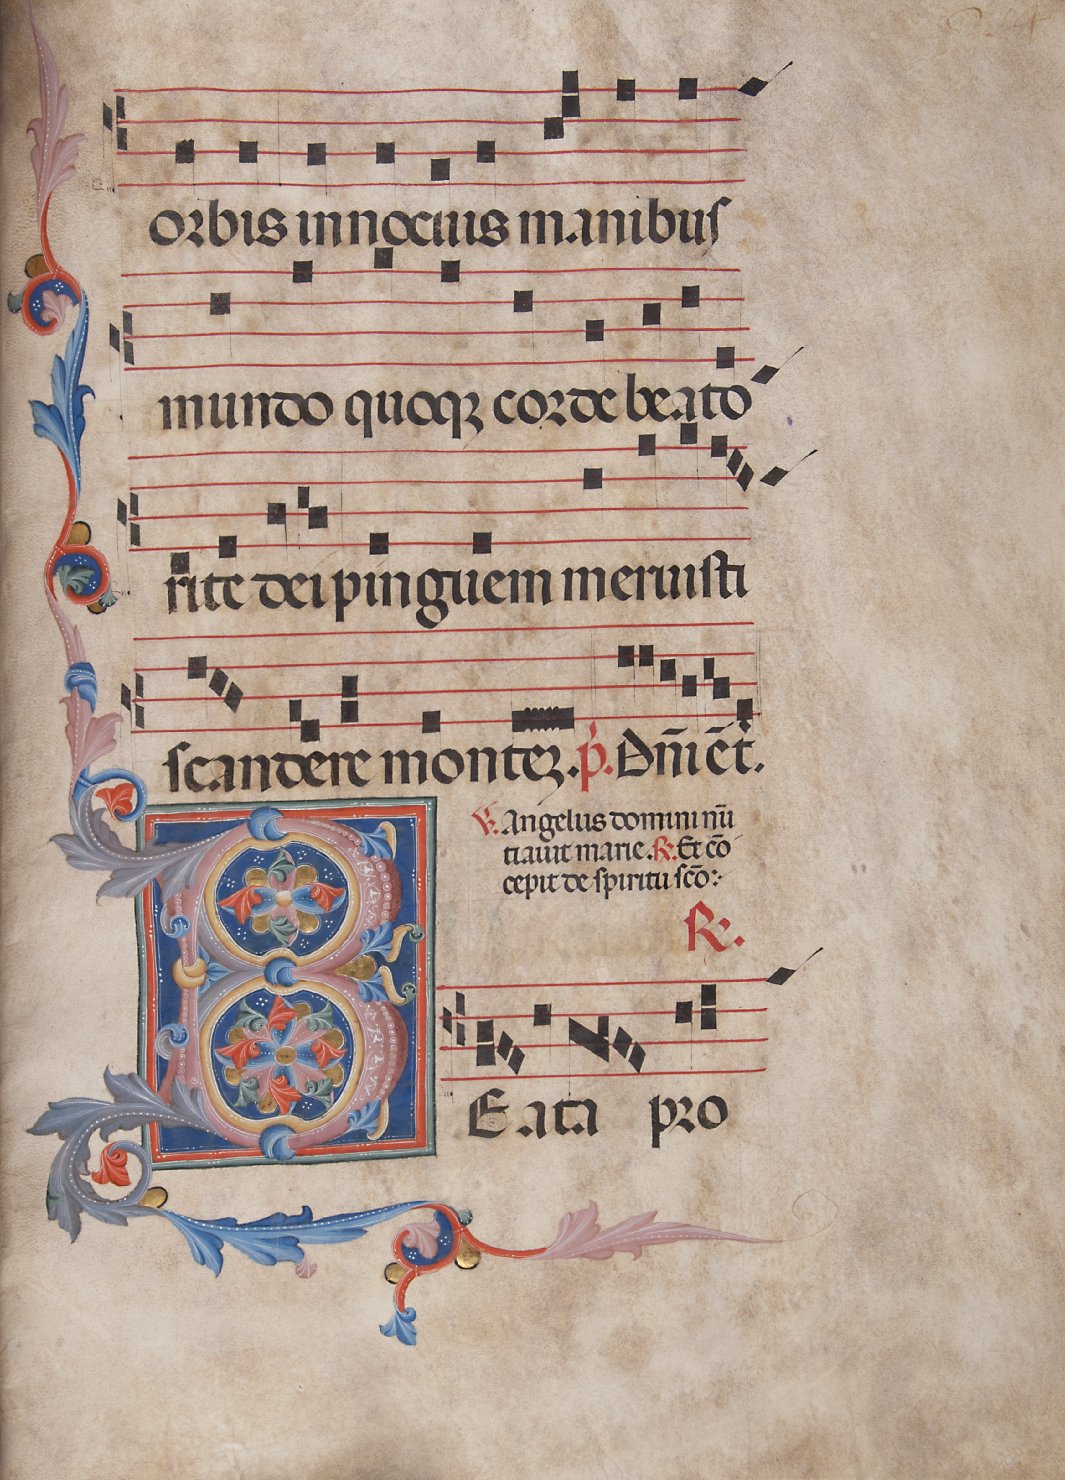 orbis innocuus manibus
mundo quoqꝫ corde beato
rite dei pinguem meruisti
scandere montez. p̄. Dn̄m ēt̄.
V. Angelus domini nū
tiauit marie. R. Et cō
cepit de spiritu scō:
R.
BEata pro